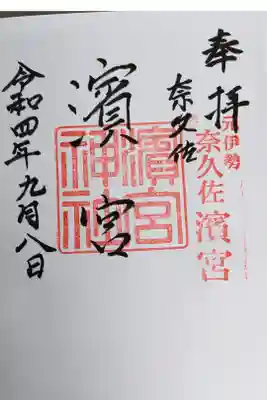 奉拝
元伊勢
奈久佐濱宮
奈久佐
濱宮
濱宮神社
令和四年九月八日